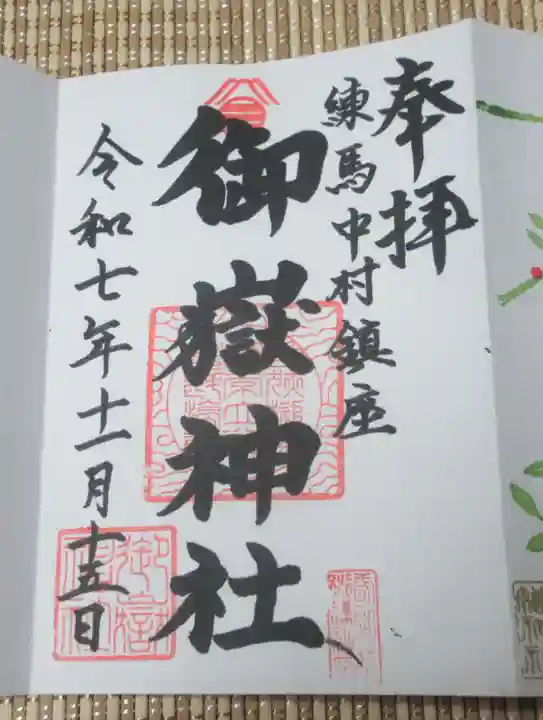 奉拝
練馬中村鎮座
御嶽神社
令和七年十一月十五日
御嶽